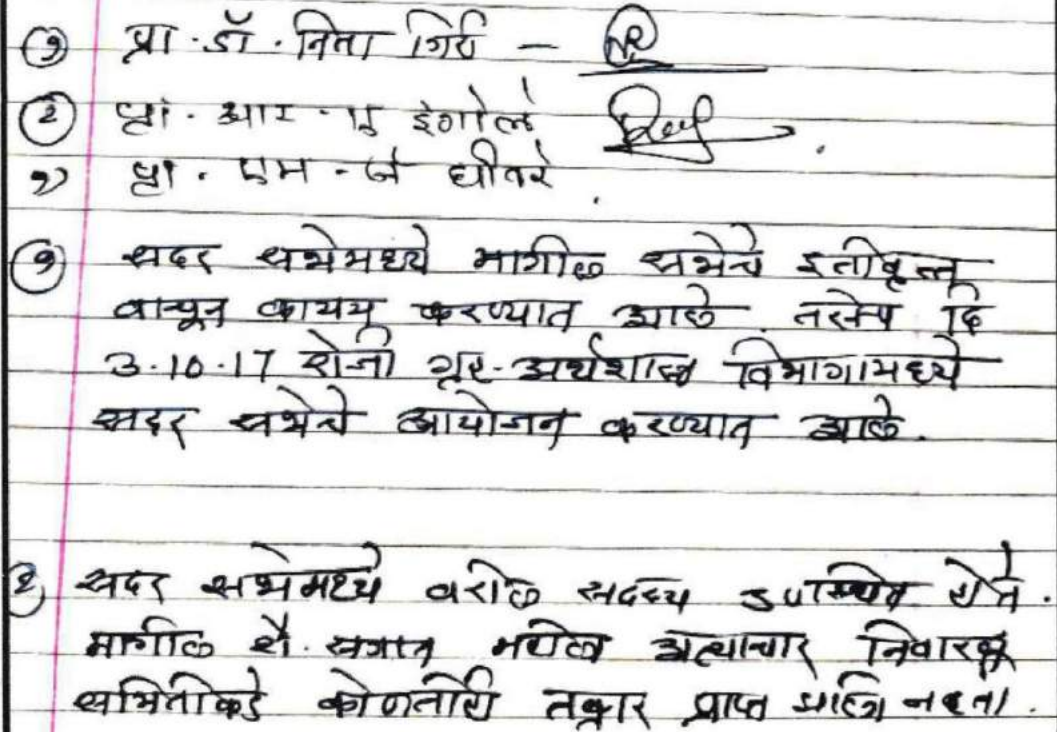 ① प्रा. डॉ. निता गिरी -
② प्रा. आर. ए इंगोले
३) प्रा. एम. जे धीवरे.
① सदर सभेमध्ये मागील सभेचे इतीवृत्त
वाचून कायम करण्यात आले. तसेच दि
3.10.17 रोजी गृह-अर्थशास्त्र विभागामध्ये
सदर सभेचे आयोजन करण्यात आले.
२) सदर सभेमध्ये वरील सदस्य उपस्थित होते.
मागील शै. सत्रात महिला अत्याचार निवारण
समितीकडे कोणतीही तक्रार प्राप्त झाली नव्हती.